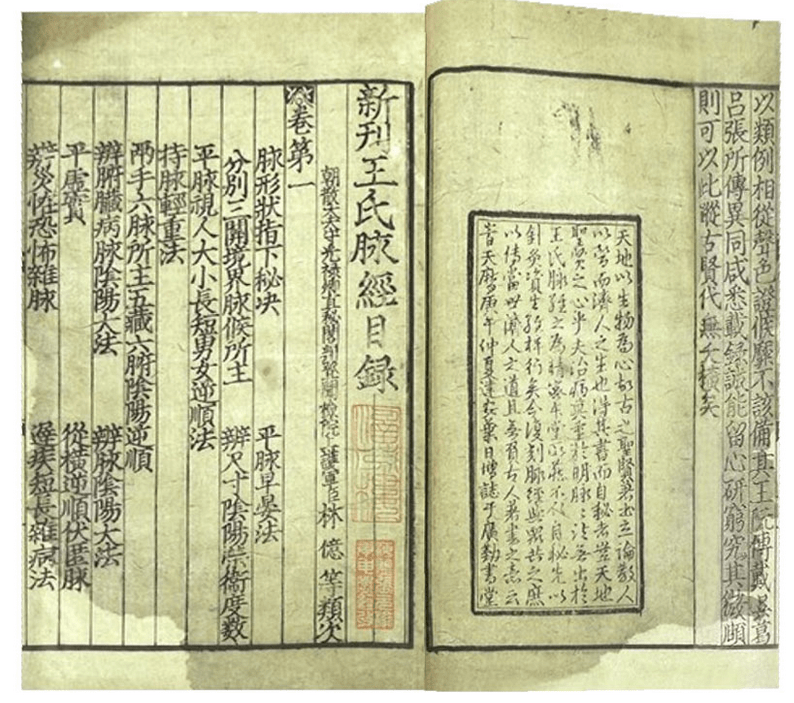 以類例相從聲色證候靡不該備其王阮傅戴吳葛
呂張所傳異同咸悉載錄誠能留心研窮究其微賾
則可以比蹤古賢代無夭橫矣
天地以生物為心故古之聖賢著書立論教人
以營而濟人之生也得其書而自秘者豈天地
聖賢之心乎夫治病莫重於明脉脉法無出於
王氏脉經之為精密本堂以藏不以自秘先以
針灸資生經梓行矣今復刻脉經與眾共之庶
以傳當世濟人之道且無負古人著書之意云
天曆庚午仲夏建安葉日增誌于廣勤書堂
新刊王氏脉經目録
朝散大夫守光祿直秘閣判登聞檢院上護軍臣林億等類次
卷第一
脉形狀指下秘決
平脉早晏法
分別三關境界脉候所主
辨尺寸陰陽榮衛度數
平脉視人大小長短男女逆順法
持脉輕重法
兩手六脉所主五藏六腑陰陽逆順
辨腑臟病脉陰陽大法
辨脉陰陽大法
平虛實
從橫逆順伏匿脉
辨災怪恐怖雜脉
遲疾短長雜病法